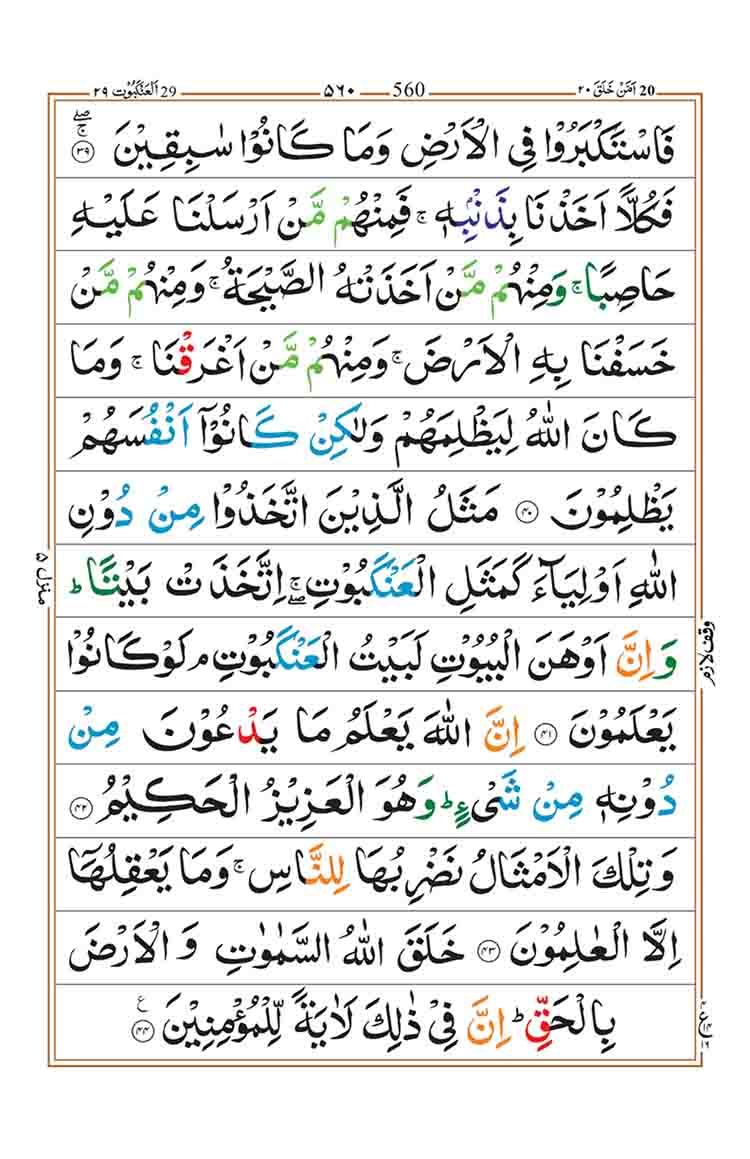 20 اَمَّنْ خَلَقَ ٢٠ 560 ٥٦٠ 29 اَلْعَنْكَبُوْت ٢٩
فَاسْتَكْبَرُوْا فِي الْاَرْضِ وَمَا كَانُوْا سٰبِقِيْنَ ۚۖ ﴿٣٩﴾
فَكُلًّا اَخَذْنَا بِذَنْۢبِهٖ ۚ فَمِنْهُمْ مَّنْ اَرْسَلْنَا عَلَيْهِ
حَاصِبًا ۚ وَمِنْهُمْ مَّنْ اَخَذَتْهُ الصَّيْحَةُ ۚ وَمِنْهُمْ مَّنْ
خَسَفْنَا بِهِ الْاَرْضَ ۚ وَمِنْهُمْ مَّنْ اَغْرَقْنَا ۚ وَمَا
كَانَ اللّٰهُ لِيَظْلِمَهُمْ وَلٰكِنْ كَانُوْۤا اَنْفُسَهُمْ
يَظْلِمُوْنَ ﴿٤٠﴾ مَثَلُ الَّذِيْنَ اتَّخَذُوْا مِنْ دُوْنِ
اللّٰهِ اَوْلِيَآءَ كَمَثَلِ الْعَنْكَبُوْتِ ۖۚ اِتَّخَذَتْ بَيْتًا ؕ
وَاِنَّ اَوْهَنَ الْبُيُوْتِ لَبَيْتُ الْعَنْكَبُوْتِ ۘ لَوْ كَانُوْا
يَعْلَمُوْنَ ﴿٤١﴾ اِنَّ اللّٰهَ يَعْلَمُ مَا يَدْعُوْنَ مِنْ
دُوْنِهٖ مِنْ شَيْءٍ ؕ وَهُوَ الْعَزِيْزُ الْحَكِيْمُ ﴿٤٢﴾
وَتِلْكَ الْاَمْثَالُ نَضْرِبُهَا لِلنَّاسِ ۚ وَمَا يَعْقِلُهَاۤ
اِلَّا الْعٰلِمُوْنَ ﴿٤٣﴾ خَلَقَ اللّٰهُ السَّمٰوٰتِ وَالْاَرْضَ
بِالْحَقِّ ؕ اِنَّ فِيْ ذٰلِكَ لَاٰيَةً لِّلْمُؤْمِنِيْنَ ﴿٤٤﴾ ع
منزل ٥
وقف لازم
٤ ع ١٤ ١٦